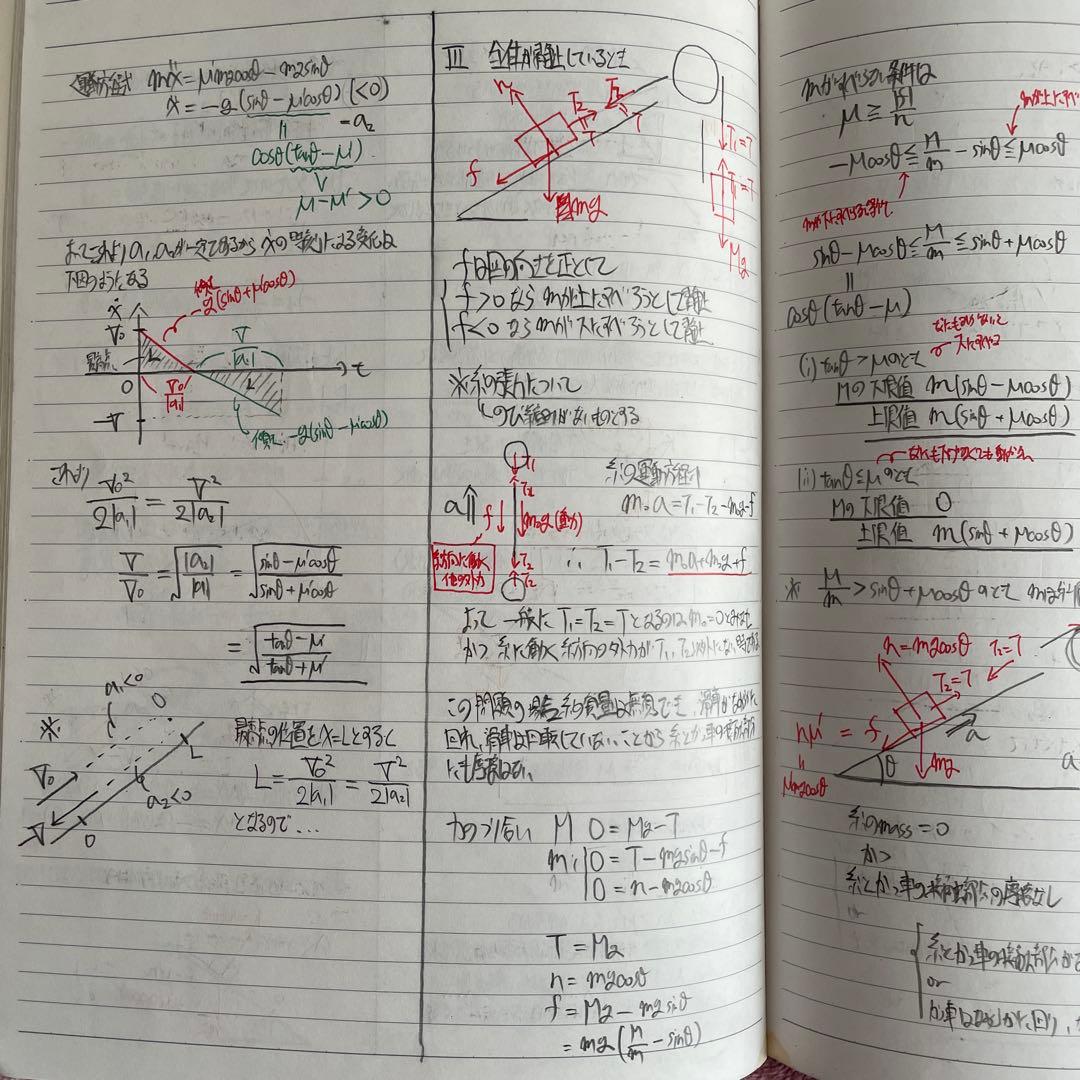 運動方程式 mẍ = μ'mgcosθ - mgsinθ
ẍ = -g(sinθ - μ'cosθ) (<0)
= -a₂
cosθ(tanθ - μ')
∨
μ - μ' > 0
よってこれより a₁, a₂が一定であるから ẋの時刻tによる変化は
下図のようになる
ẋ
V₀
傾き
-g(sinθ + μ'cosθ)
L
V/|a₂|
O
V₀/|a₁|
L
t
-V
傾き -g(sinθ - μ'cosθ)
これより
V₀²/2|a₁| = V²/2|a₂|
V/V₀ = √|a₂|/|a₁| = √(sinθ - μ'cosθ)/(sinθ + μ'cosθ)
= √(tanθ - μ')/(tanθ + μ')
a₁<0
O
※
L
V₀
a₂<0
V
O
最高点の位置をx=Lとすると
L = V₀²/2|a₁| = V²/2|a₂|
となるので…
III 全体が静止しているとき
n
T₂
T₂
T
T
f
mg
T₁=T
T₁=T
Mg
fは図の向きを正として
f>0なら mが上にすべろうとして静止
f<0なら mが下にすべろうとして静止
※糸の張力について
のび縮みがないものとする
T₁
T₂
a
f
m₀g(重力)
糸方向に働く
他の外力
T₂
T₂
糸の運動方程式
m₀a = T₁ - T₂ - m₀g - f
∴ T₁ - T₂ = m₀a + m₀g + f
よって 一般に T₁=T₂=Tとなるのは m₀=0とみなせ
かつ 糸に働く糸方向の外力が T₁, T₂以外にない時である
この問題の場合 糸の質量は無視でき、滑車がなめらかに
回れ、滑車は回転していないことから糸とかっ車の接触部分
にも摩擦はない
力のつり合い M 0 = Mg - T
m 0 = T - mgsinθ - f
0 = n - mgcosθ
T = Mg
n = mgcosθ
f = Mg - mgsinθ
= mg(M/m - sinθ)
mがすべらない条件は
μ ≧ |f|/n
mが上にすべ
-μcosθ ≦ M/m - sinθ ≦ μcosθ
mが下にすべらない条件
sinθ - μcosθ ≦ M/m ≦ sinθ + μcosθ
=
cosθ(tanθ - μ)
(i) tanθ > μのとき
下にすべる
Mの下限値 m(sinθ - μcosθ)
上限値 m(sinθ + μcosθ)
(ii) tanθ ≦ μのとき
Mの下限値 0
上限値 m(sinθ + μcosθ)
※ M/m > sinθ + μcosθ のとき mは
n = mgcosθ
T₁=T
T₂=T
nμ' = f
=
μ'mgcosθ
mg
θ
a
a
糸のmass = 0
かつ
糸とかっ車の接触部分の摩擦なし
糸とかっ車の接触部分が
or
かっ車はなめらかに回り、